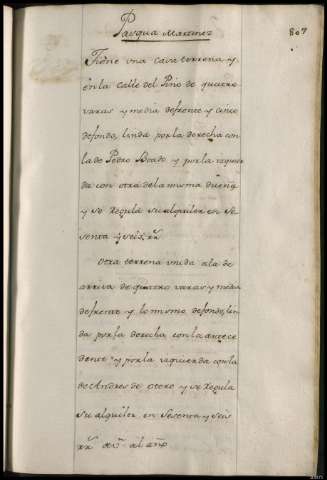 Pasqua Martinez
807
Tiene una casa terrena y
en la Calle del Pino de quatro
varas y media de frente y cinco
de fondo, linda por la derecha con
la de Pedro y por la izquier
da con otra de la misma dueña
y se regula su alquiler en se
senta y seis rr.
Otra terrena unida a la de
arriva de quatro varas y media
de frente y lo mismo de fondo, lin
da por la derecha con la antece
dente y por la izquierda con la
de Andres de otero y se regula
su alquiler en sesenta y seis
rr. de vn. al año